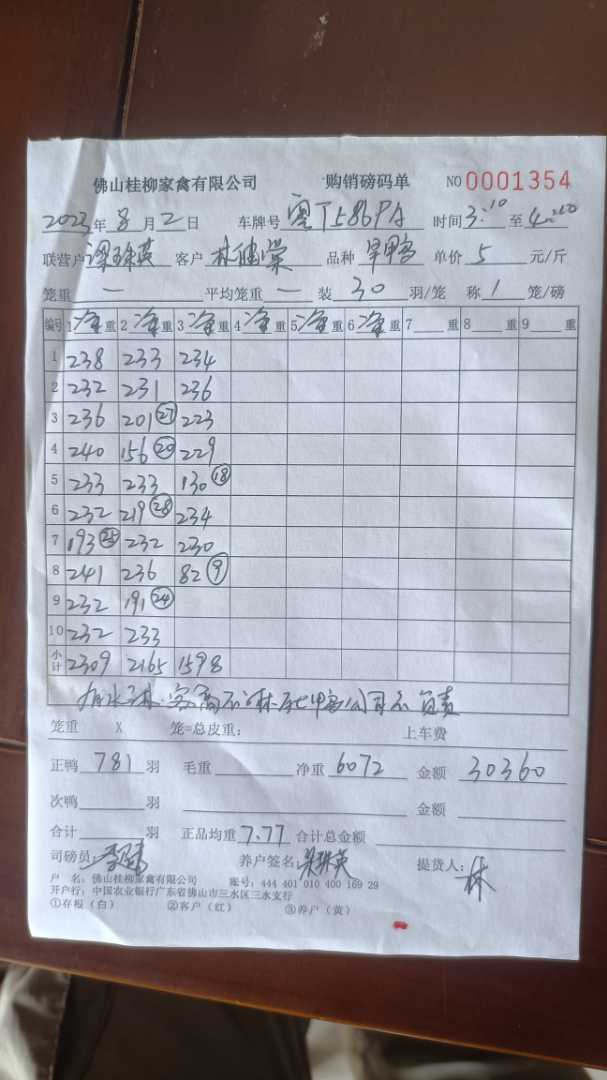 佛山桂柳家禽有限公司 购销磅码单 NO 0001354
2023年8月2日 车牌号 粤T586PA 时间3:10至4:20
联营户 梁珠英 客户 林健棠 品种 旱甲客 单价 5 元/斤
笼重 一 平均笼重 一 装 30 羽/笼 称 1 笼/磅
编号 1净重 2净重 3净重 4净重 5净重 6净重 7 重 8 重 9 重
1 238 233 234
2 232 231 236
3 236 201㉗ 223
4 240 156⑳ 229
5 233 233 130⑱
6 232 219㉘ 234
7 193㉕ 232 230
8 241 236 82⑨
9 232 191㉔
10 232 233
小计 2309 2165 1598
有水淋 客商不淋 死甲客公司不负责
笼重 X 笼=总皮重: 上车费
正鸭 781 羽 毛重 净重 6072 金额 30360
次鸭 羽 金额
合计 羽 正品均重 7.77 合计总金额
司磅员: 养户签名: 梁珠英 提货人: 林
户 名: 佛山桂柳家禽有限公司 账号: 444 401 010 400 169 29
开户行: 中国农业银行广东省佛山市三水区三水支行
①存根(白) ②客户(红) ③养户(黄)